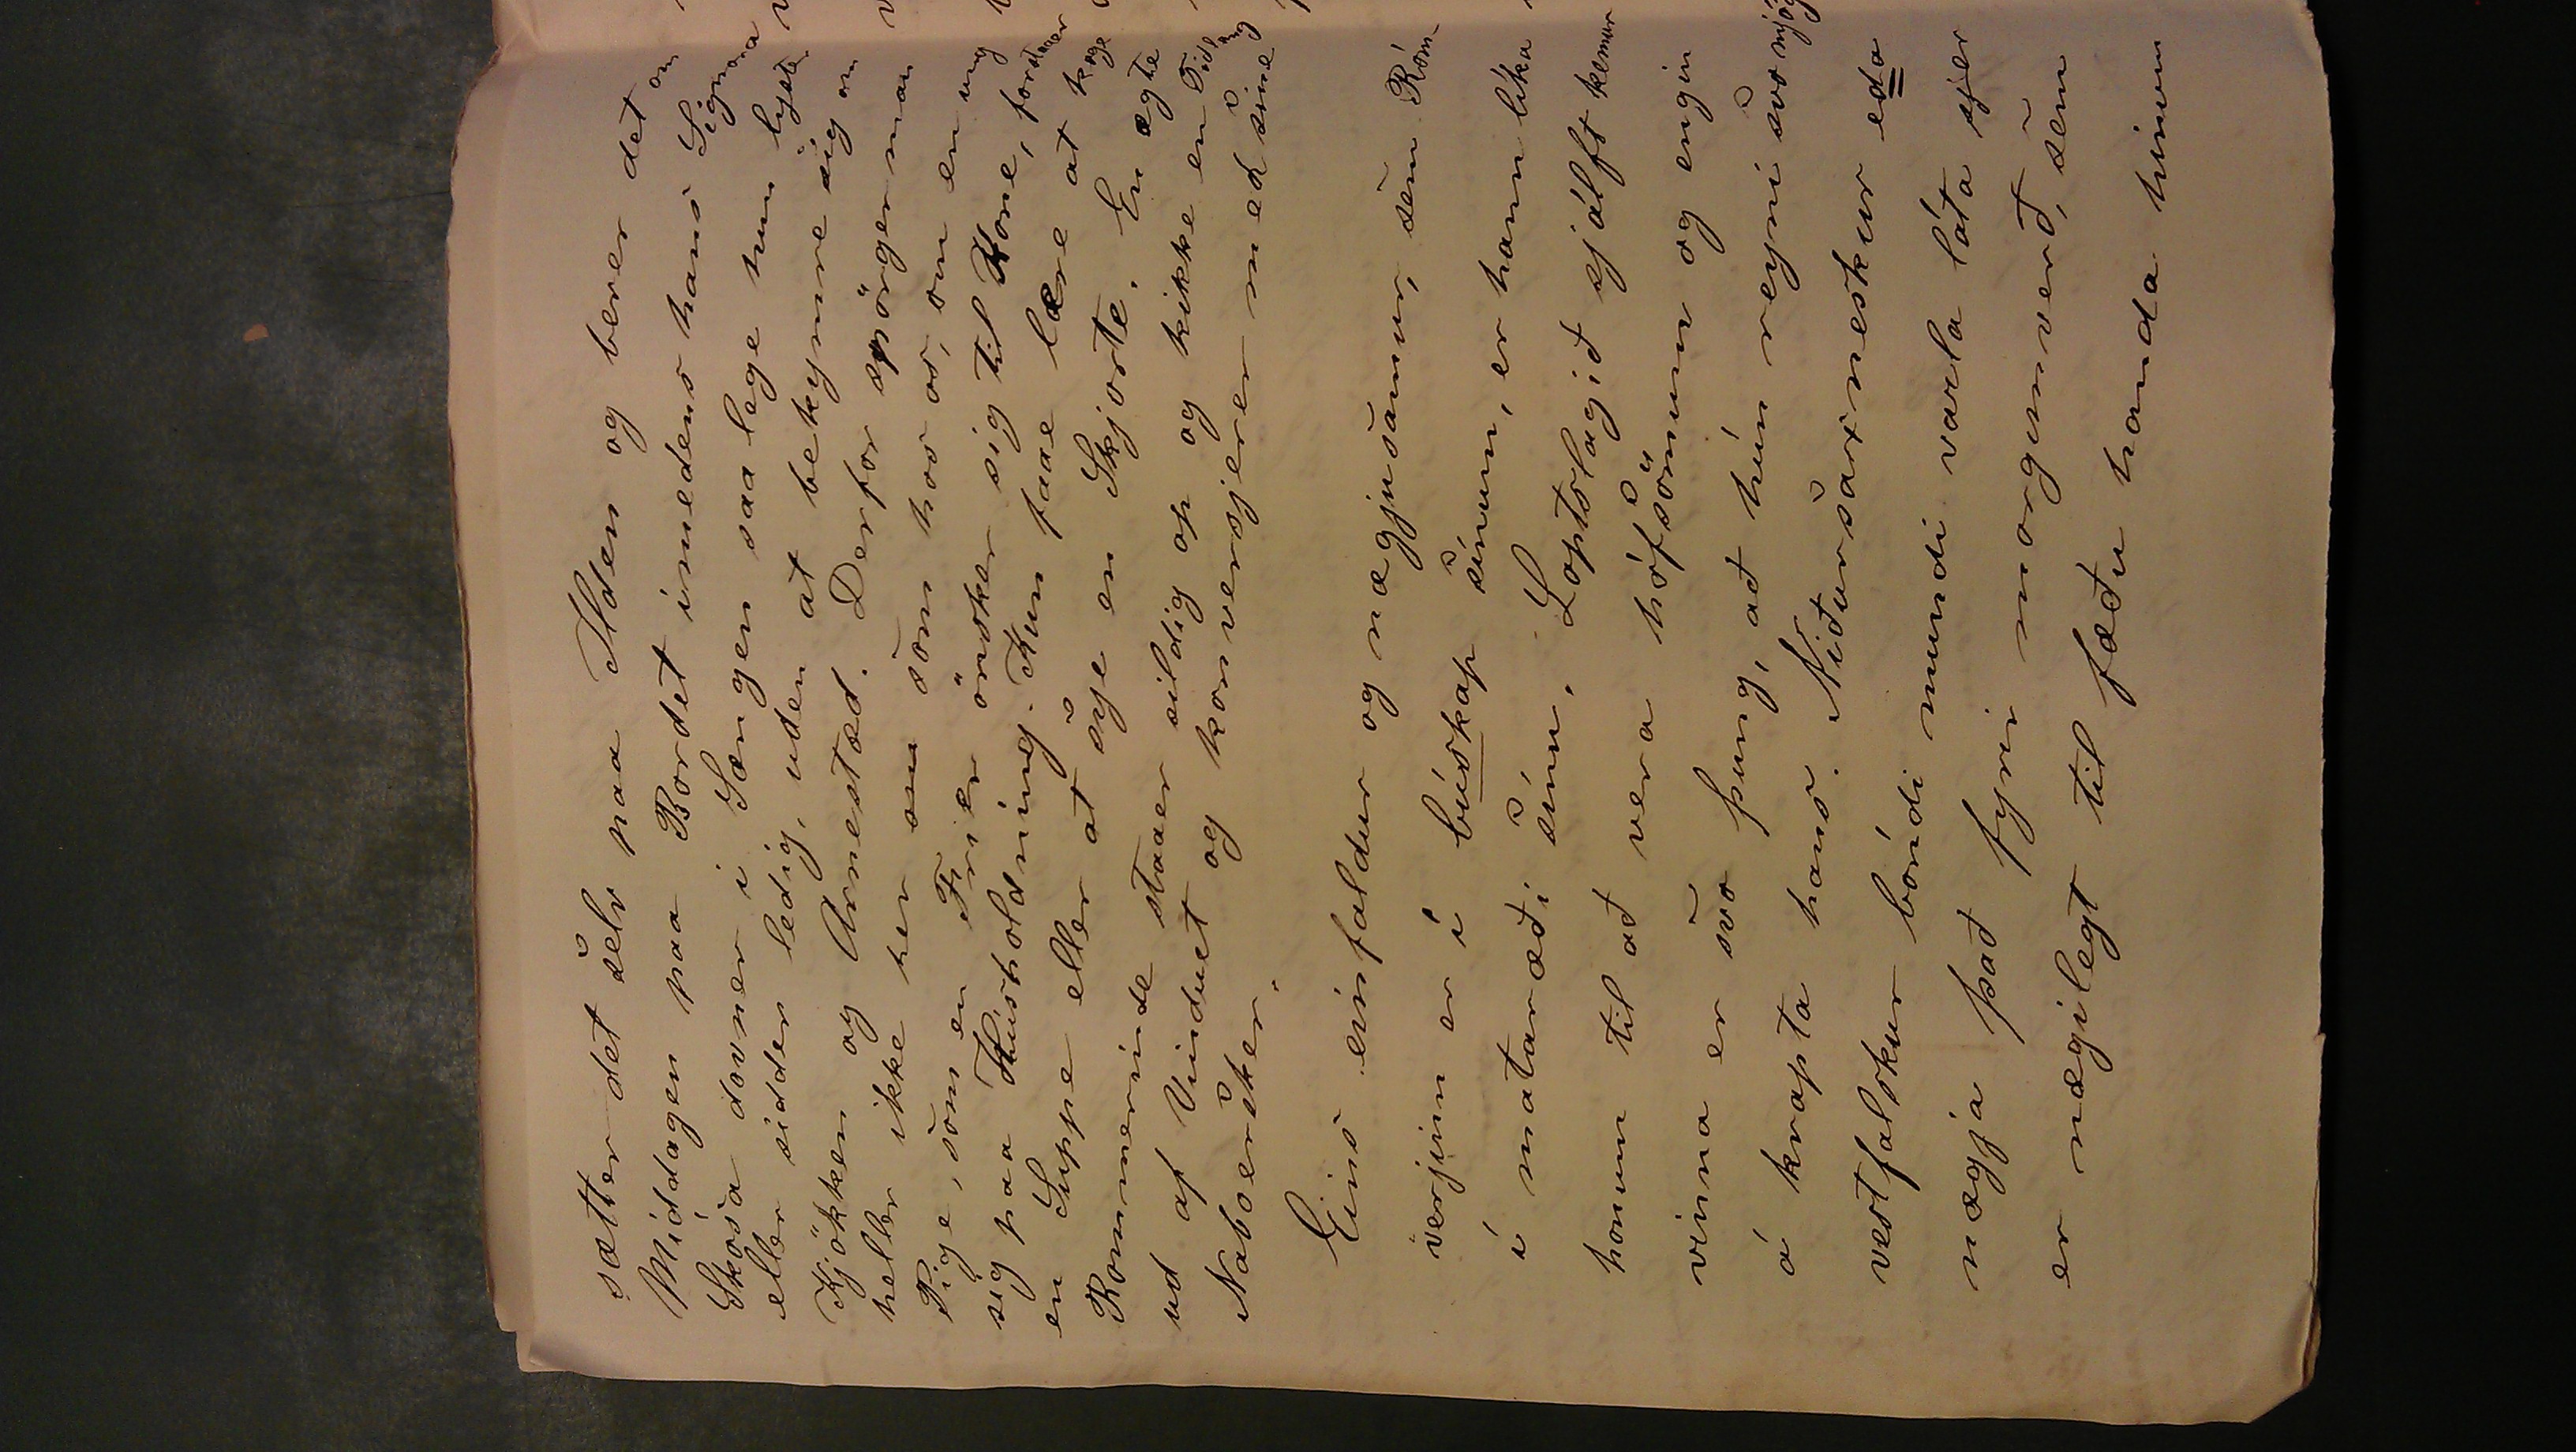 sætter det selv paa Ilden og berer det om
Middagen paa Bordet imedens hans Signora
Sposa dovner i Sængen saa lege hun lyster
eller sidder ledig, uden at bekymre sig om
Kjökken og Arnested. Derfor spörger man
heller ikke her om som hos os, om en ung
Pige, som en Frier önsker sig til Kone, forstaaer
sig paa Husholdning. Kun faae lære at koge
en Suppe eller at sye en Skjorte. En ægte
Rommerinde staaer sildig op og kikke en Tid lang
ud af Vinduet og konverserer med sine
Naboersker.
Eins einfaldur og nægjusamur, sem Róm-
verjinn er í búskap sínum, er hann líka
í mataræði sínu. Loptslagið sjálft kemur
honum til að vera hófsömum og engin
vinna er svo þung, að hún reyni svo mjög
á krapta hans. Niðursaxneskur eda
vestfalskur bóndi mundi varla láta sjer
nægja það fyrir morgunverð, sem
er nægilegt til fæðu handa hinum